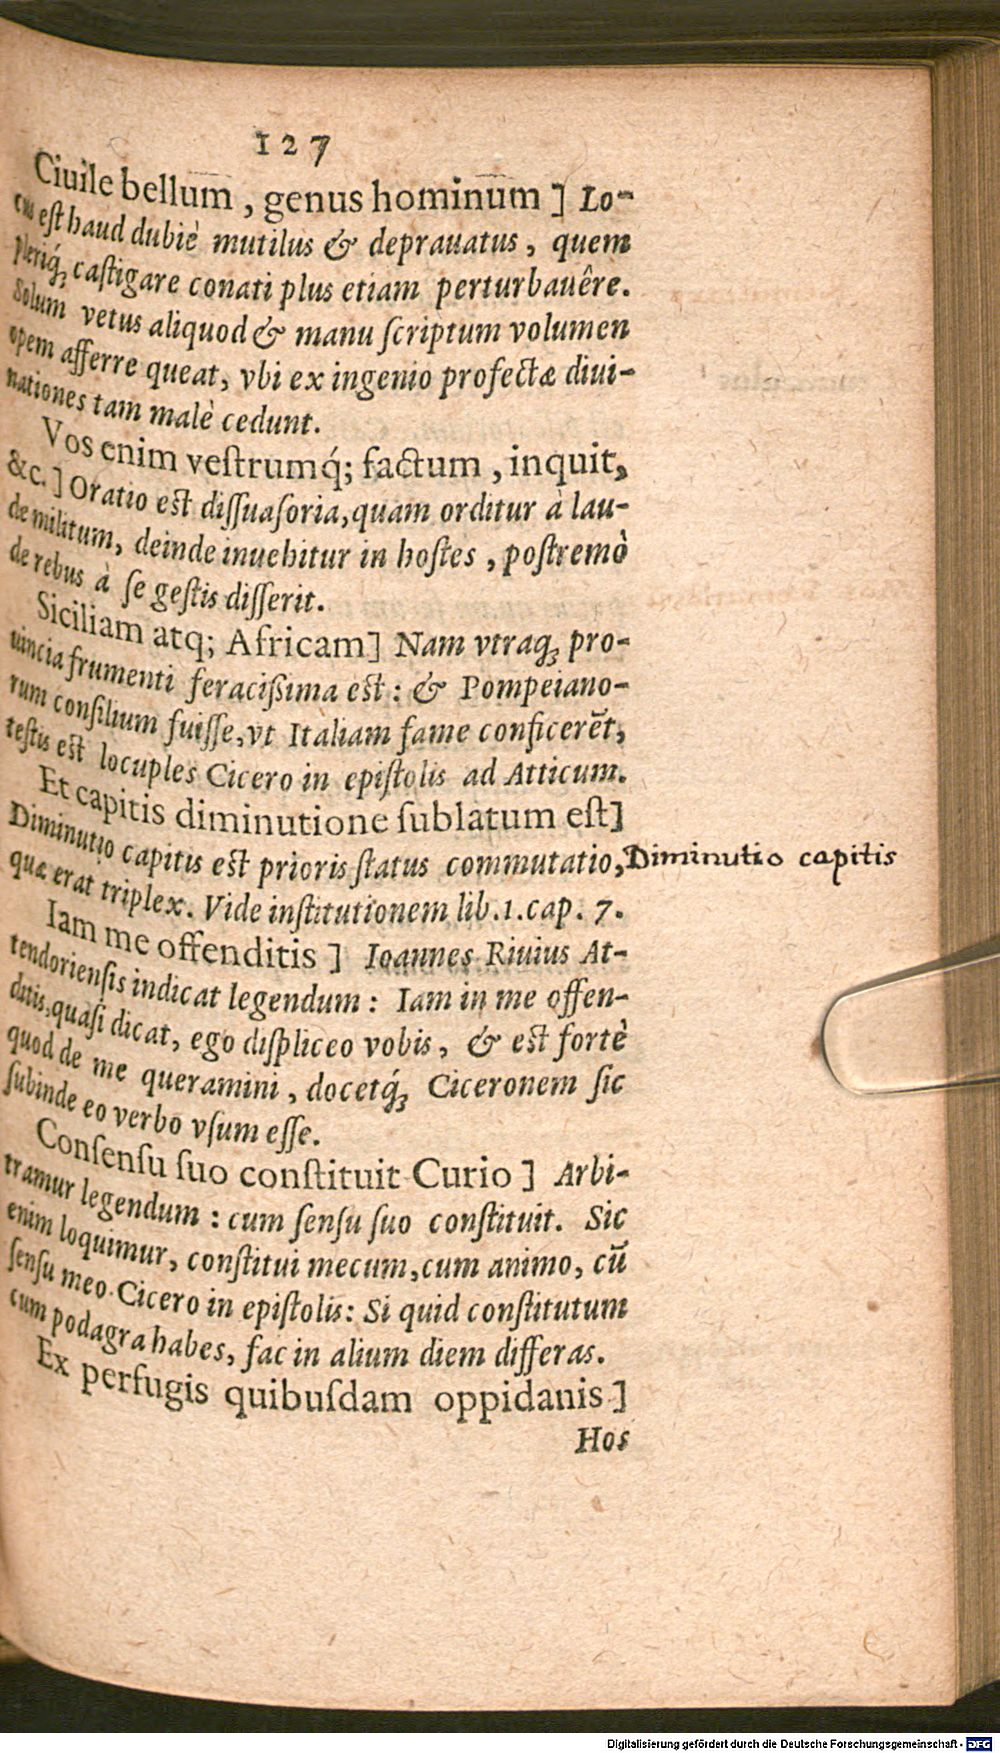 127
Ciuile bellum, genus hominum] Lo-
cus est haud dubiè mutilus & deprauatus, quem
pleriq́; castigare conati plus etiam perturbauêre.
Solum vetus aliquod & manu scriptum volumen
opem afferre queat, vbi ex ingenio profectæ diui-
nationes tam malè cedunt.
Vos enim vestrumq́; factum, inquit,
&c.] Oratio est dissuasoria, quam orditur à lau-
de militum, deinde inuehitur in hostes, postremò
de rebus à se gestis disserit.
Siciliam atq; Africam] Nam vtraq; pro-
uincia frumenti feracissima est: & Pompeiano-
rum consilium fuisse, vt Italiam fame conficerēt,
testis est locuples Cicero in epistolis ad Atticum.
Et capitis diminutione sublatum est]
Diminutio capitis est prioris status commutatio, Diminutio capitis
quæ erat triplex. Vide institutionem lib. 1. cap. 7.
Iam me offenditis] Ioannes Riuius At-
tendoriensis indicat legendum: Iam in me offen-
ditis, quasi dicat, ego displiceo vobis, & est fortè
quod de me queramini, docetq́; Ciceronem sic
subinde eo verbo vsum esse.
Consensu suo constituit Curio] Arbi-
tramur legendum: cum sensu suo constituit. Sic
enim loquimur, constitui mecum, cum animo, cū
sensu meo. Cicero in epistolis: Si quid constitutum
cum podagra habes, fac in alium diem differas.
Ex perfugis quibusdam oppidanis]
Hos
Digitalisierung gefördert durch die Deutsche Forschungsgemeinschaft - DFG